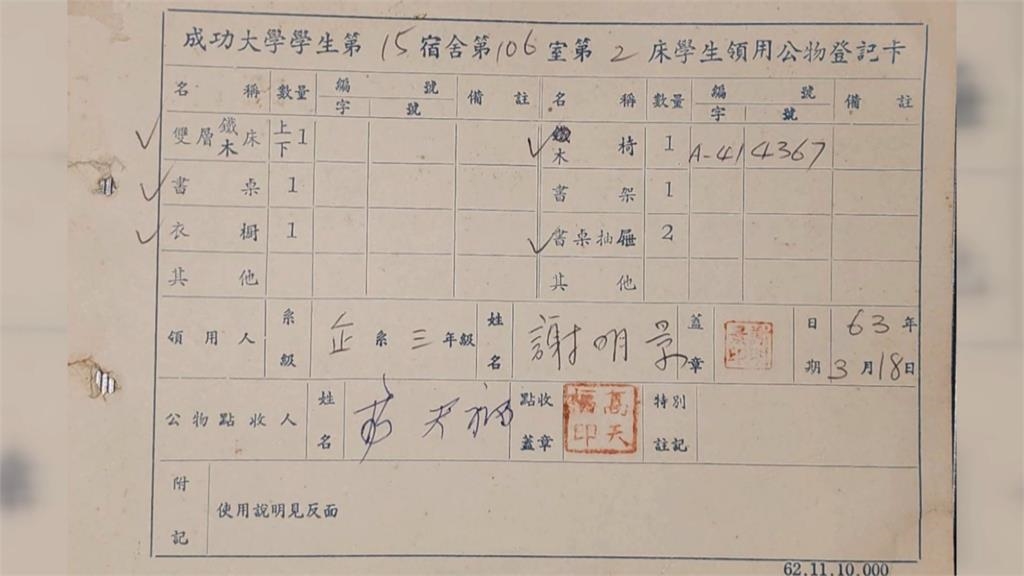 成功大學學生第15宿舍第106室第2床學生領用公物登記卡
名稱 數量 編號 備註 名稱 數量 編號 備註
字 號 字 號
✓ 雙層鐵木床 上下1 ✓ 鐵木椅 1 A-41 4367
✓ 書桌 1 書架 1
✓ 衣櫥 1 ✓ 書桌抽屜 2
其他 其他
領用人 系級 企系三年級 姓名 謝明景 蓋章 日期 63年3月18日
公物點收人 姓名 高天福 點收蓋章 高天福印 特別註記
附記 使用說明見反面
62.11.10.000